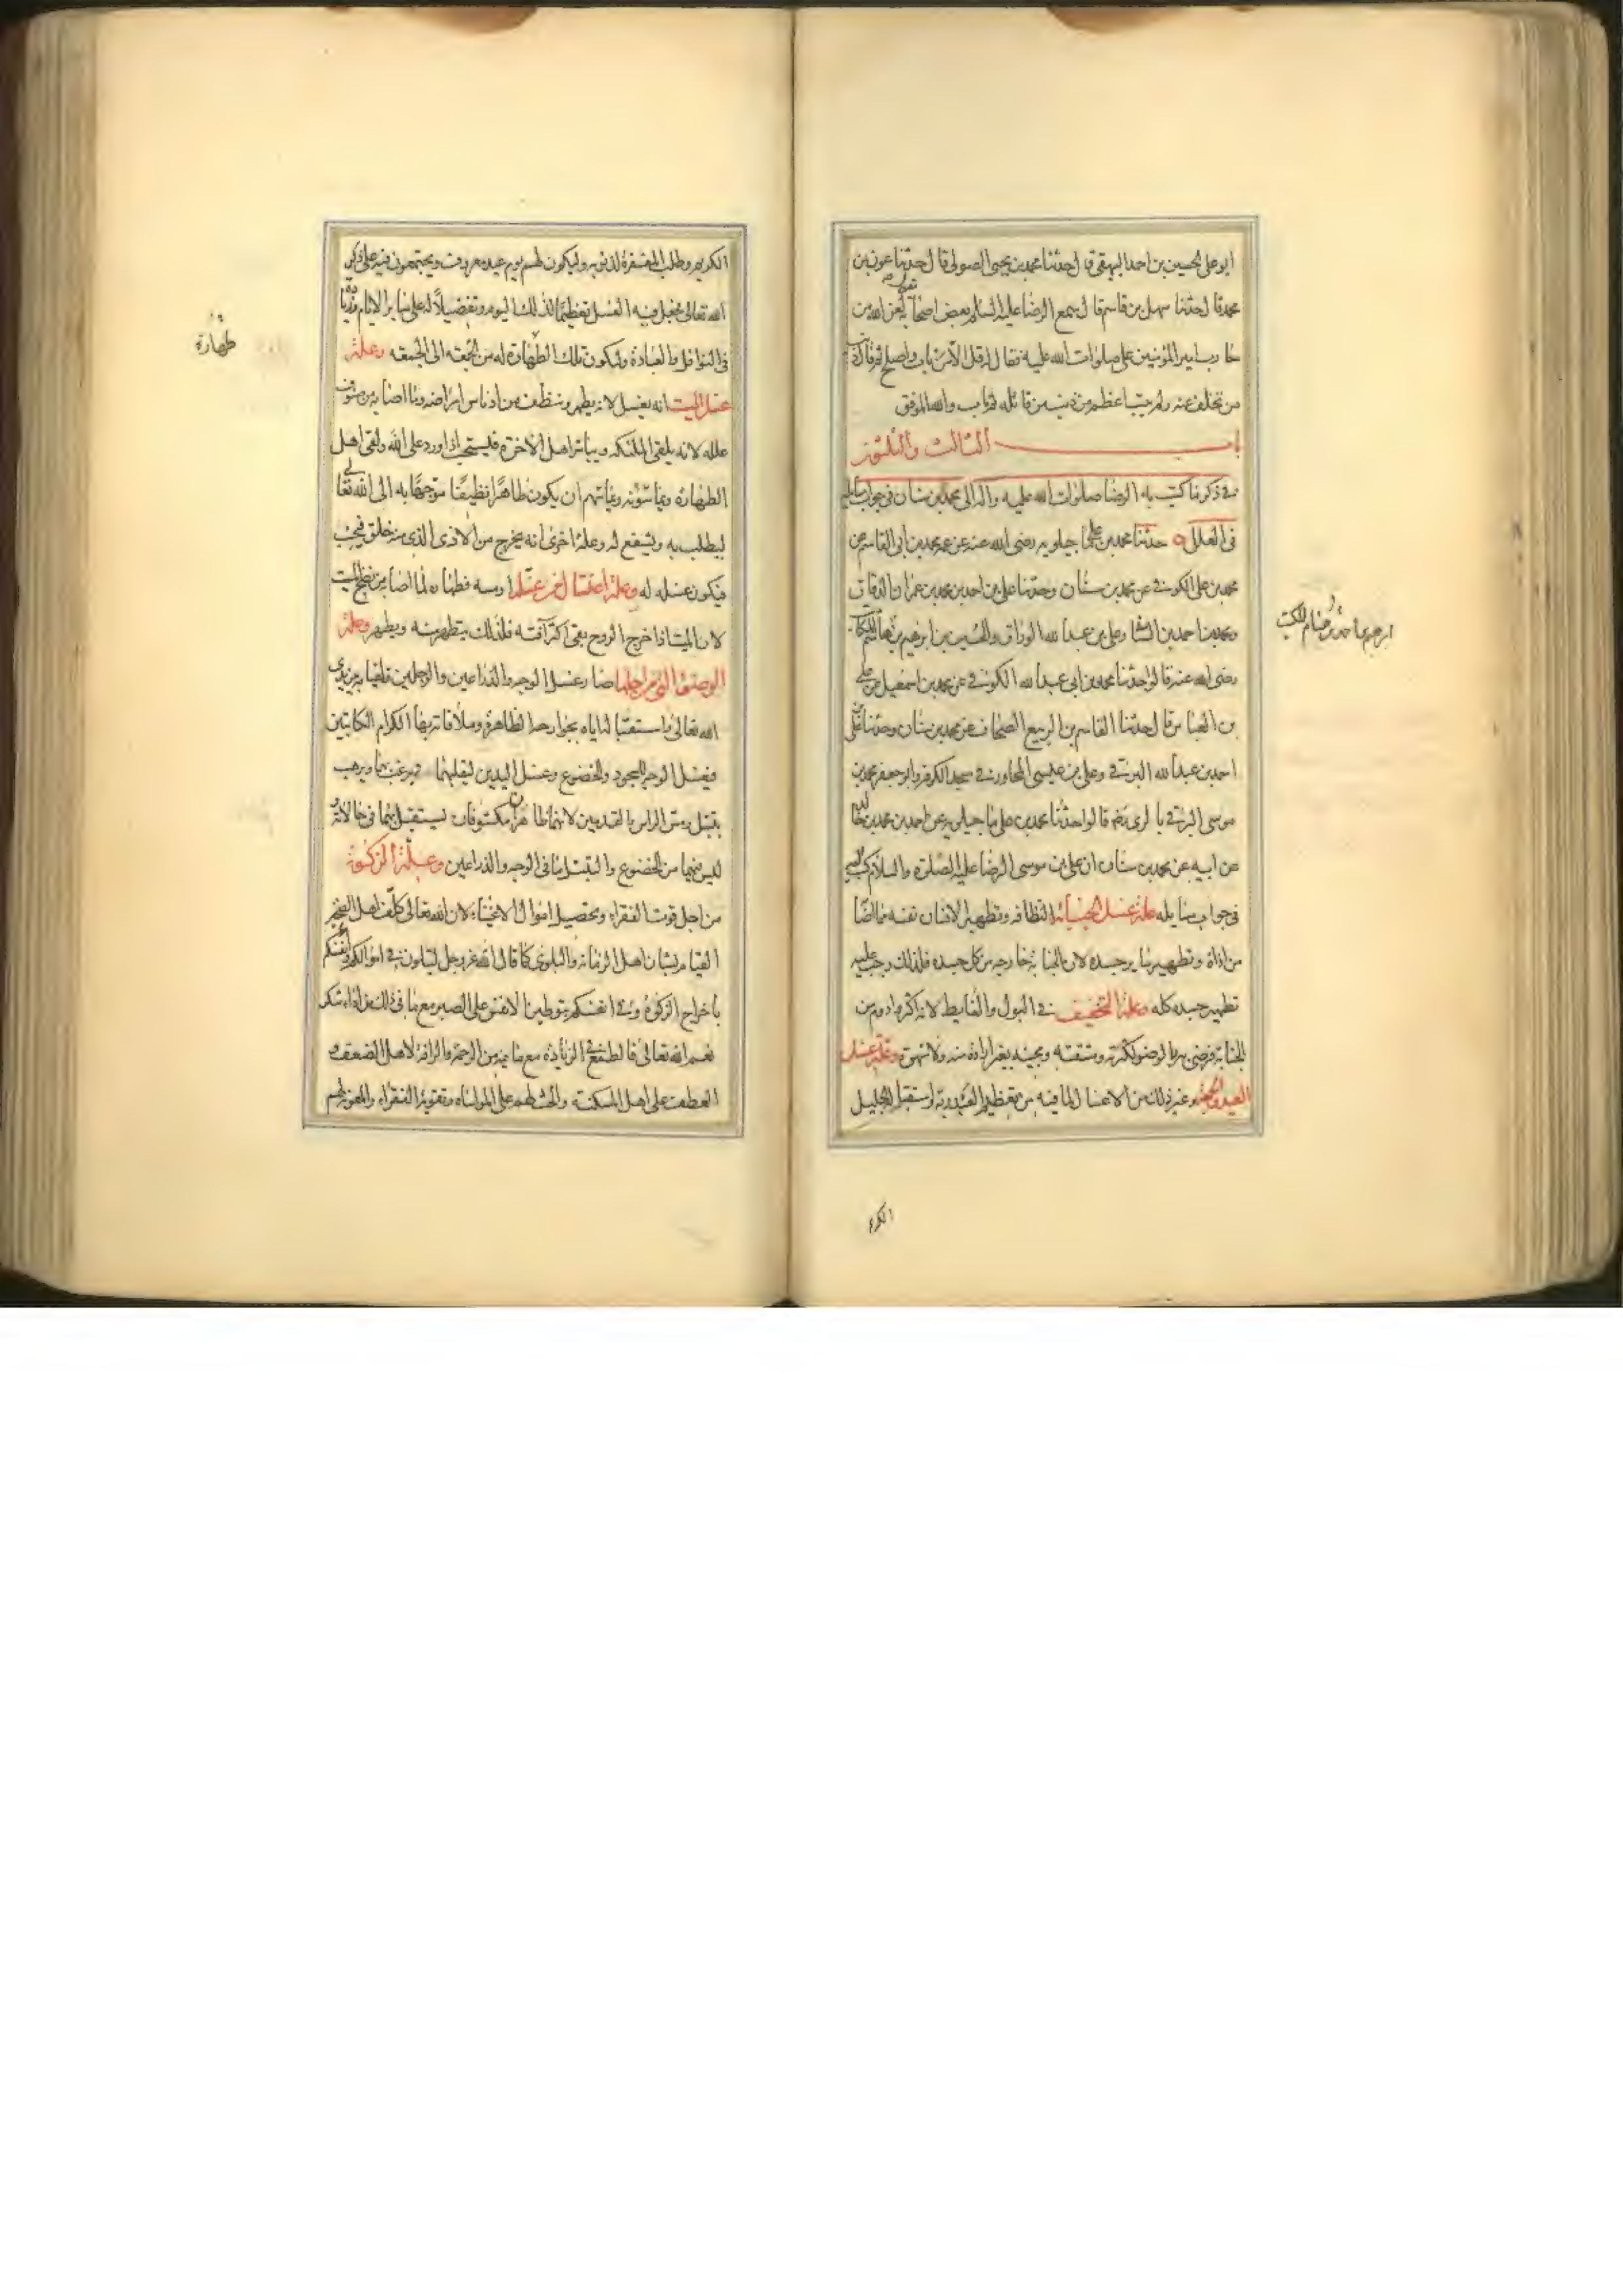 ابو على الحسين بن احمد البيهقى قال حدثنا محمد بن يحيى الصولى قال حدثنا عون بن
محمد قال حدثنا سهل بن قاسم قال سمع الرضا عليه السلم بعض اصحابه يقول لعن الله من
حارب امير المؤمنين على صلوات الله عليه فقال له قل الا من تاب واصلح ثم قال ذنب
من تخلف عنه ولم يتب اعظم من ذنب من قاتله ثم تاب والله الموفق
باب الثالث والثلثون
فى ذكر ما كتب به الرضا صلوات الله عليه واله الى محمد بن سنان فى جواب مسايله
فى العلل حدثنا محمد بن على ماجيلويه رضى الله عنه عن عمه محمد بن ابى القاسم عن
محمد بن على الكوفى عن محمد بن سنان وحدثنا على بن احمد بن محمد بن عمران الدقاق
ومحمد بن احمد السنا وعلى بن عبد الله الوراق والحسين بن ابرهيم بن هاشم المكتب
رضى الله عنهم قالوا حدثنا محمد بن ابى عبد الله الكوفى عن محمد بن اسمعيل عن على
بن العباس قال حدثنا القاسم بن الربيع الصحاف عن محمد بن سنان وحدثنا على
احمد بن عبد الله البرقى وعلى بن عيسى المجاور فى مسجد الكوفه وابو جعفر محمد بن
موسى البرقى بالرى رضهم قالوا حدثنا محمد بن على ماجيلويه عن احمد بن محمد بن خالد
عن ابيه عن محمد بن سنان ان على بن موسى الرضا عليه الصلوة والسلام كتب اليه
فى جواب مسايله علة غسل الجنابة النظافه وتطهير الانسان نفسه مما اصا
من اذاة وتطهير ساير جسده لان الجنابة خارجه من كل جسده فلذلك وجب عليه
تطهير جسده كله وعلة التخفيف فى البول والغايط لانه اكثر وادوم من
الجنابة فرضى فيه بالوضو لكثرته ومشقته ومجيئه بغير ارادة منه ولا شهوة وعلة غسل
العيد والجمعة وغير ذلك من الاغسال لما فيه من تعظيم العبد ربه واستقباله الجليل
الكريم
ابرهيم بن احمد بن هشام المكتب
الكريم وطلب المغفرة لذنوبه وليكون لهم يوم عيد معروف ويجتمعون فيه على ذكر
الله تعالى فجعل فيه الغسل تعظيمًا لذلك اليوم وتفضيلاً له على ساير الايام وزيادة
فى النوافل والعبادة وليكون تلك الطهارة له من الجمعة الى الجمعه وعلة
غسل الميت انه يغسل لانه يطهر وينظف من ادناس امراضه وما اصابه من صنوف
علله لانه يلقى الملئكه ويباشر اهل الاخرة فيستحب اذا ورد على الله ولقى اهل
الطهارة ويماسونه ويماسهم ان يكون طاهرا نظيفا موجها به الى الله تعالى
ليطلب به ويشفع له وعلة اخرى انه يخرج من الاذى الذى منه خلق فيجنب
فيكون غسله له وعلة اغتسال من غسله او مسه فطهارة لما اصابه من نضح الميت
لان الميت اذا خرج الروح بقى اكثر آفته فلذلك يتطهر منه ويطهر وعلة
الوضوء التى من اجلها صار غسل الوجه والذراعين والرجلين فلقيامه بين يدى
الله تعالى واستقباله اياه بجوارحه الظاهرة وملاقاته بها الكرام الكاتبين
فيغسل الوجه للسجود والخضوع وغسل اليدين ليقلبهما فيرغب بهما ويرهب
يتبتل ومسح الراس والقدمين لانهما ظاهران مكشوفان يستقبل بهما فى حالاته
ليس فيهما من الخضوع والتبتل ما فى الوجه والذراعين وعلة الزكوة
من اجل قوت الفقراء وتحصيل اموال الاغنياء لان الله تعالى كلف اهل الصحة
القيام بشان اهل الزمانة والبلوى كما قال الله عز وجل لتبلون فى اموالكم وانفسكم
باخراج الزكوة وفى انفسكم بتوطين الانفس على الصبر مع ما فى ذلك من اداء شكر
نعم الله تعالى والطمع فى الزيادة مع ما فيه من الرحمة والرافة لاهل الضعف و
العطف على اهل المسكنة والحث لهم على المواساه وتقوية الفقراء والمعونة لهم
طهارة